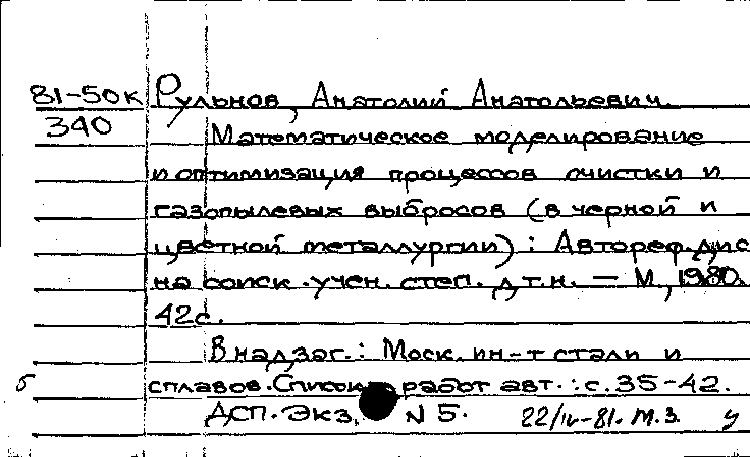 81-50к Рульнов, Анатолий Анатольевич.
340 Математическое моделирование
и оптимизация процессов очистки и
газопылевых выбросов (в черной и
цветной металлургии) : Автореф. дис
на соиск. учен. степ. д.т.н. — М, 1980.
42с.
В надзаг.: Моск. ин-т стали и
б сплавов. Список работ авт.: с. 35-42.
ДСП. Экз. N 5. 22/IV-81. М.З. у